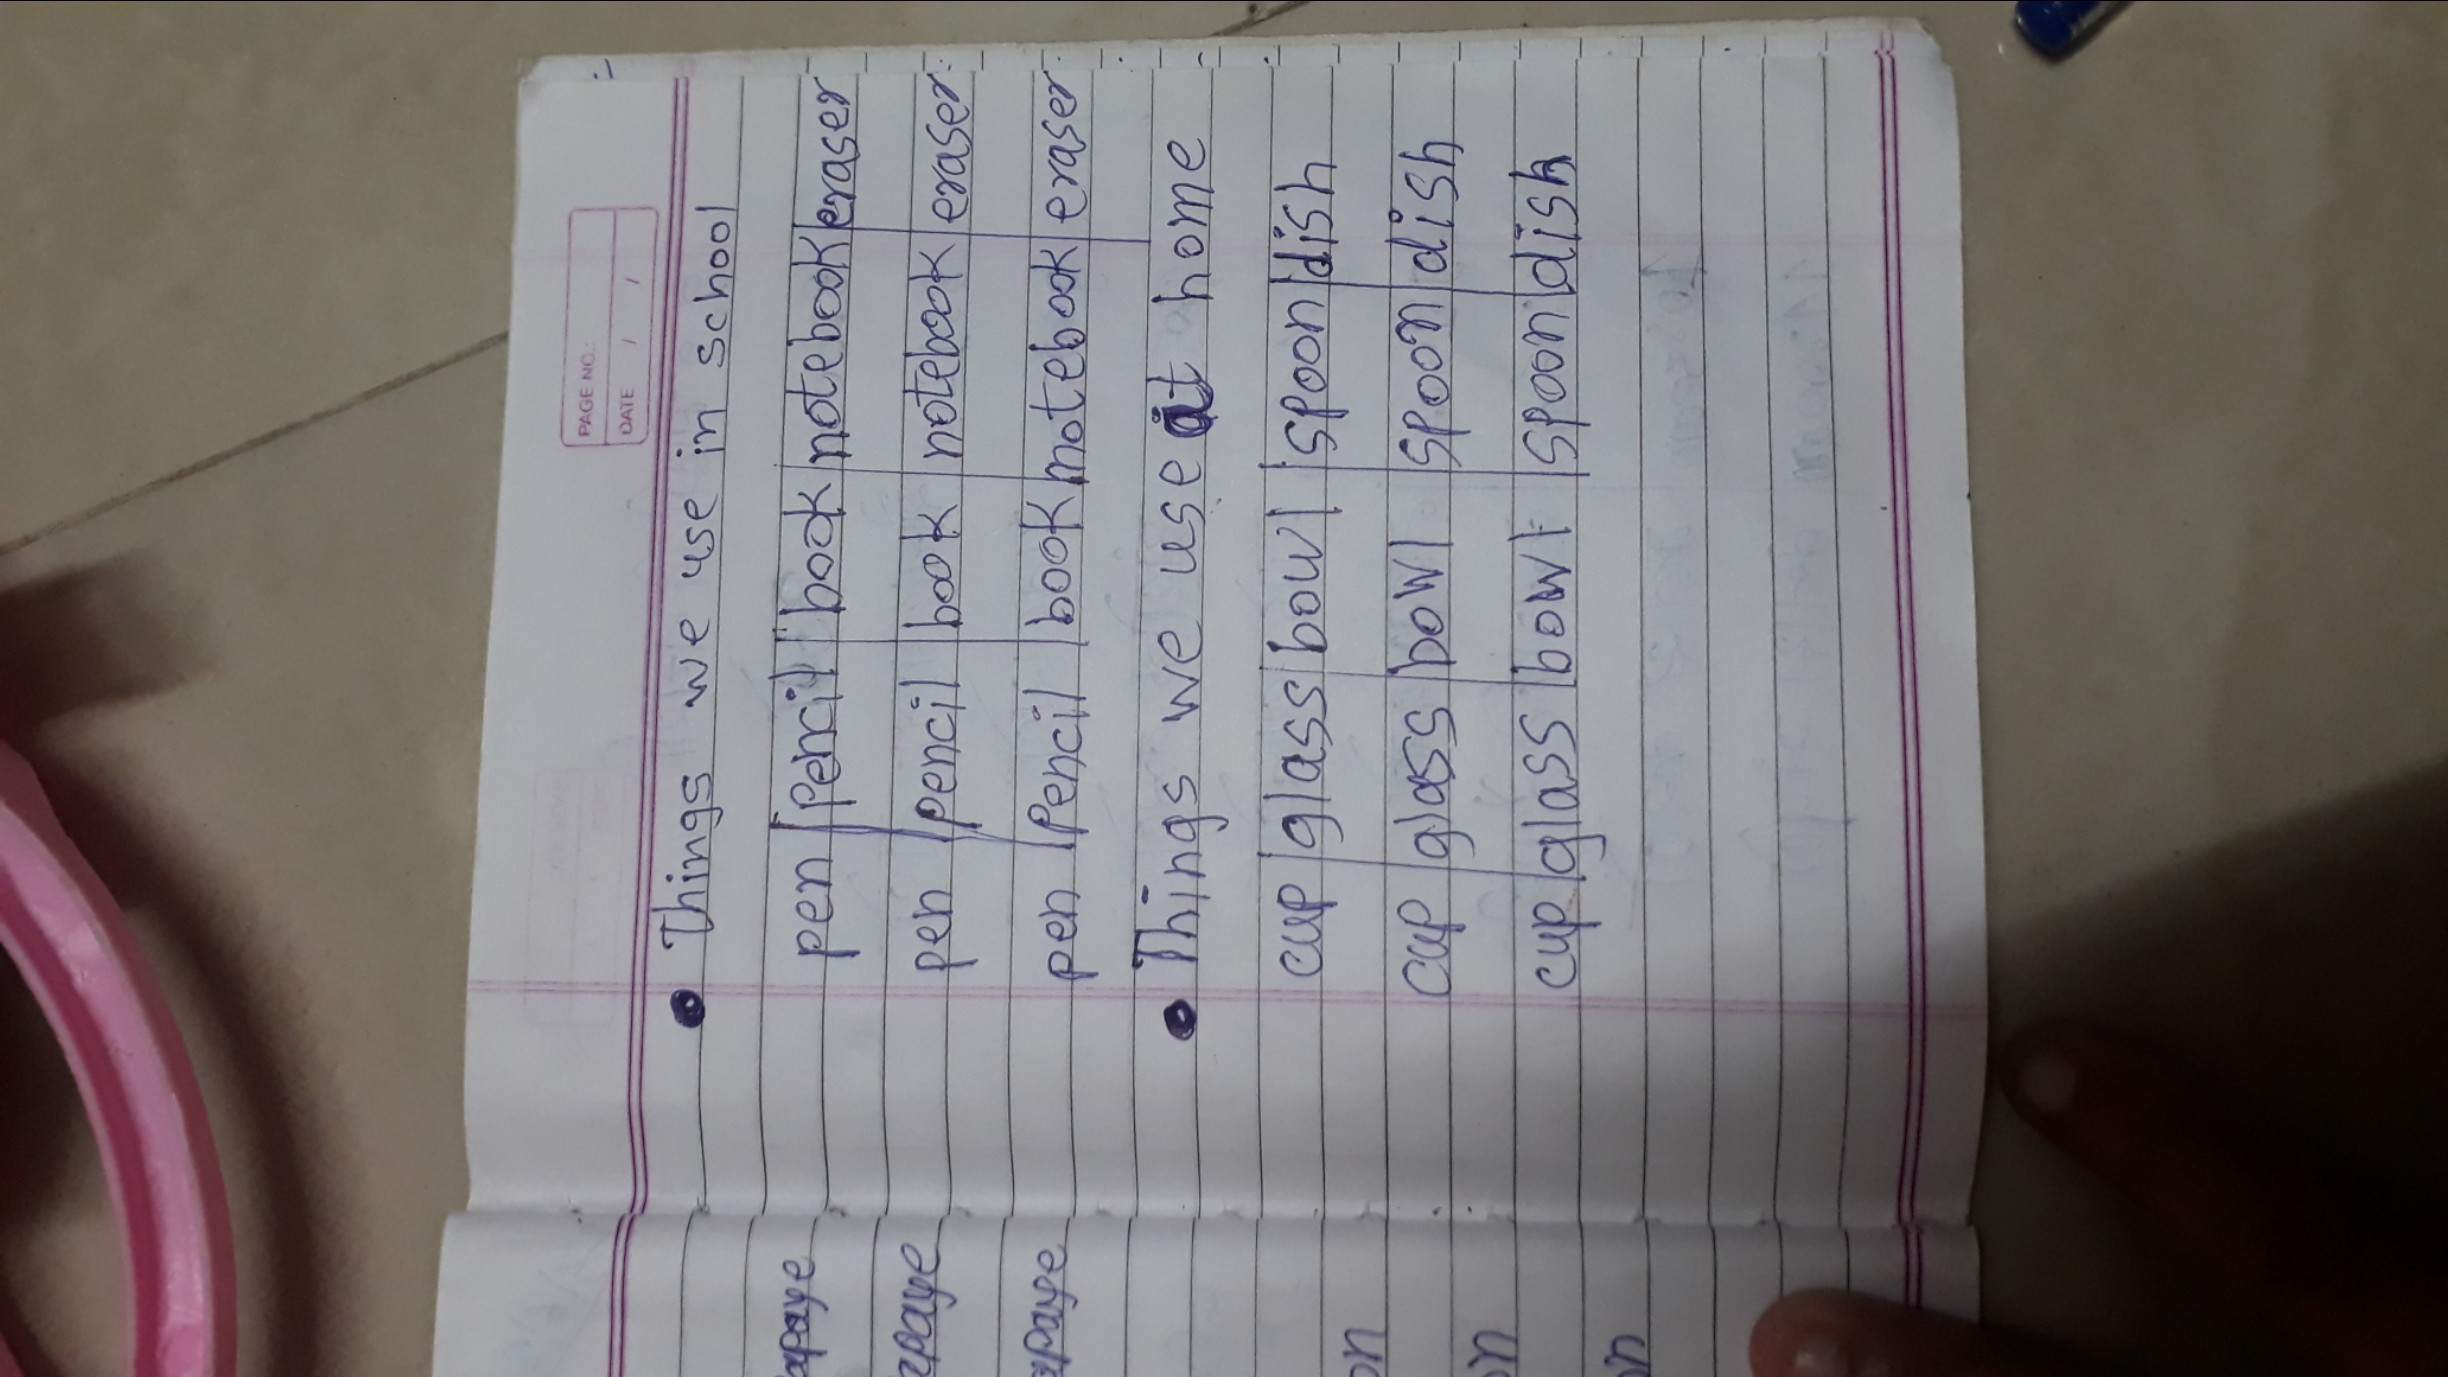 PAGE NO.:
DATE / /
• Things we use in school
pen | pencil | book | notebook | eraser
pen | pencil | book | notebook | eraser
pen | Pencil | book | notebook | eraser
• Things we use at home
cup | glass | bowl | spoon | dish
cup | glass | bowl | spoon | dish
cup | glass | bowl | spoon | dish